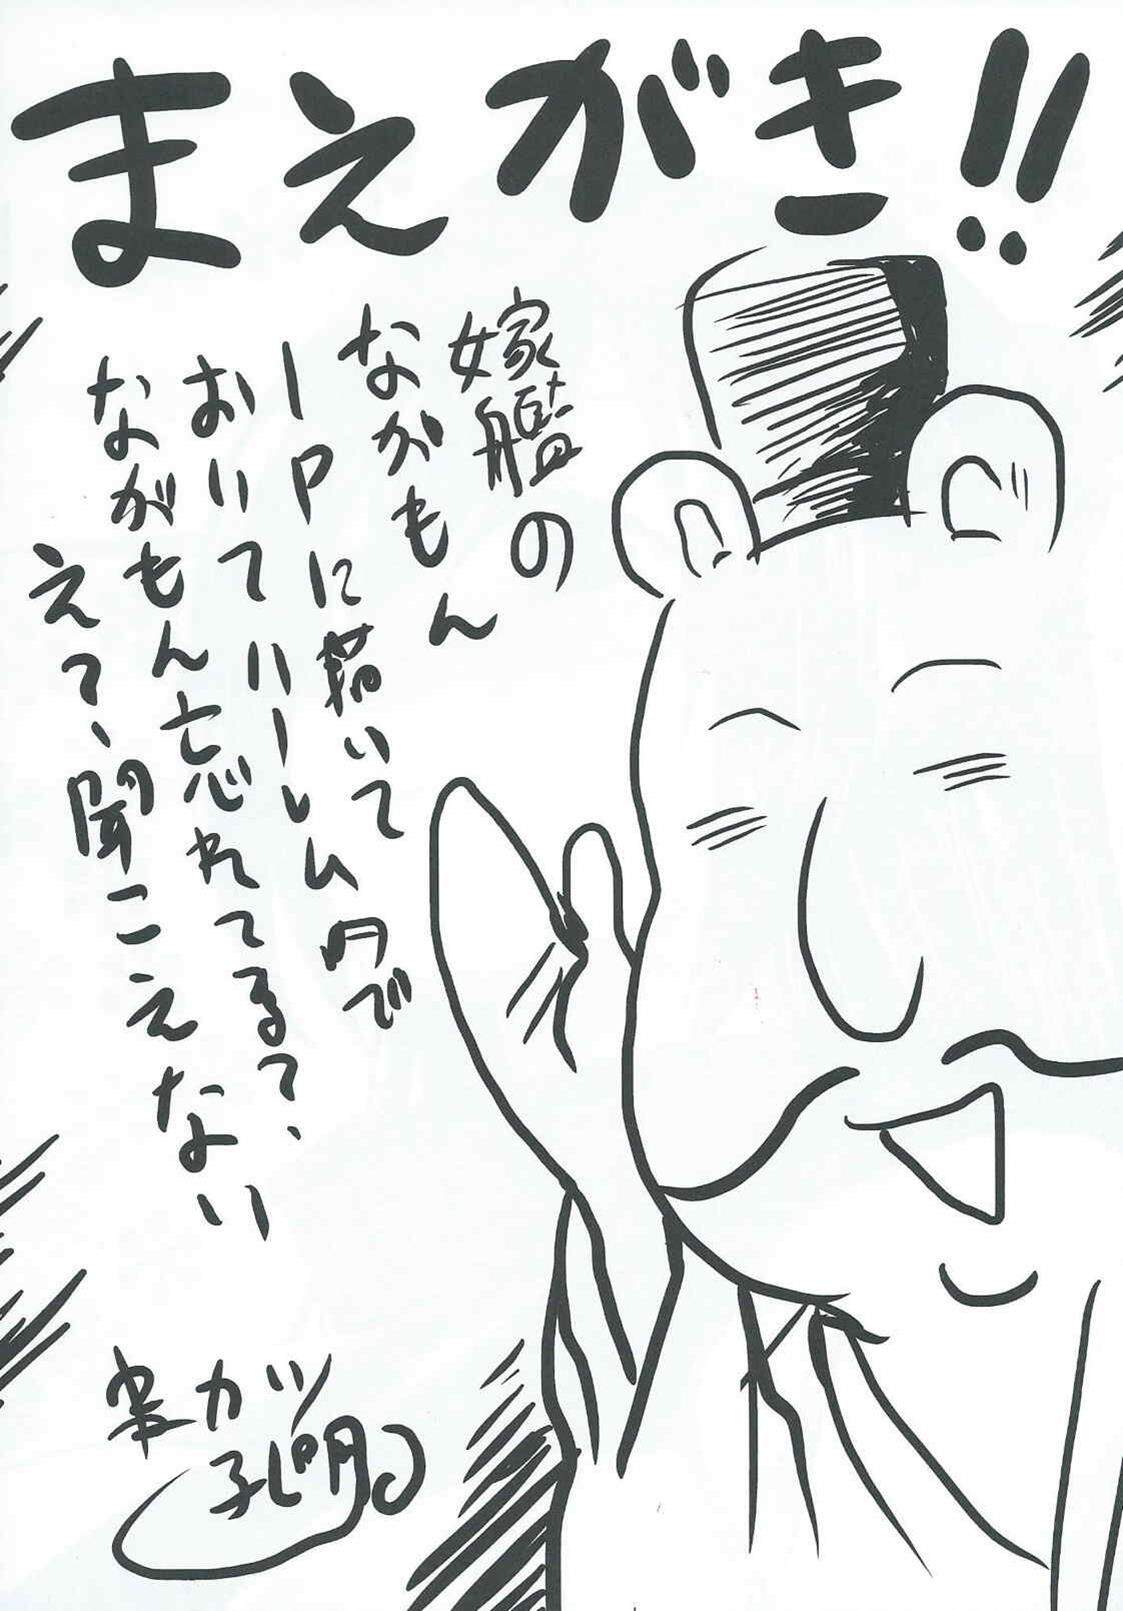 まえがき!!
嫁艦の
ながもん
1Pに描いて
おいてハーレム内で
ながもん忘れてる?、
えて、聞こえない
カツ
孔明